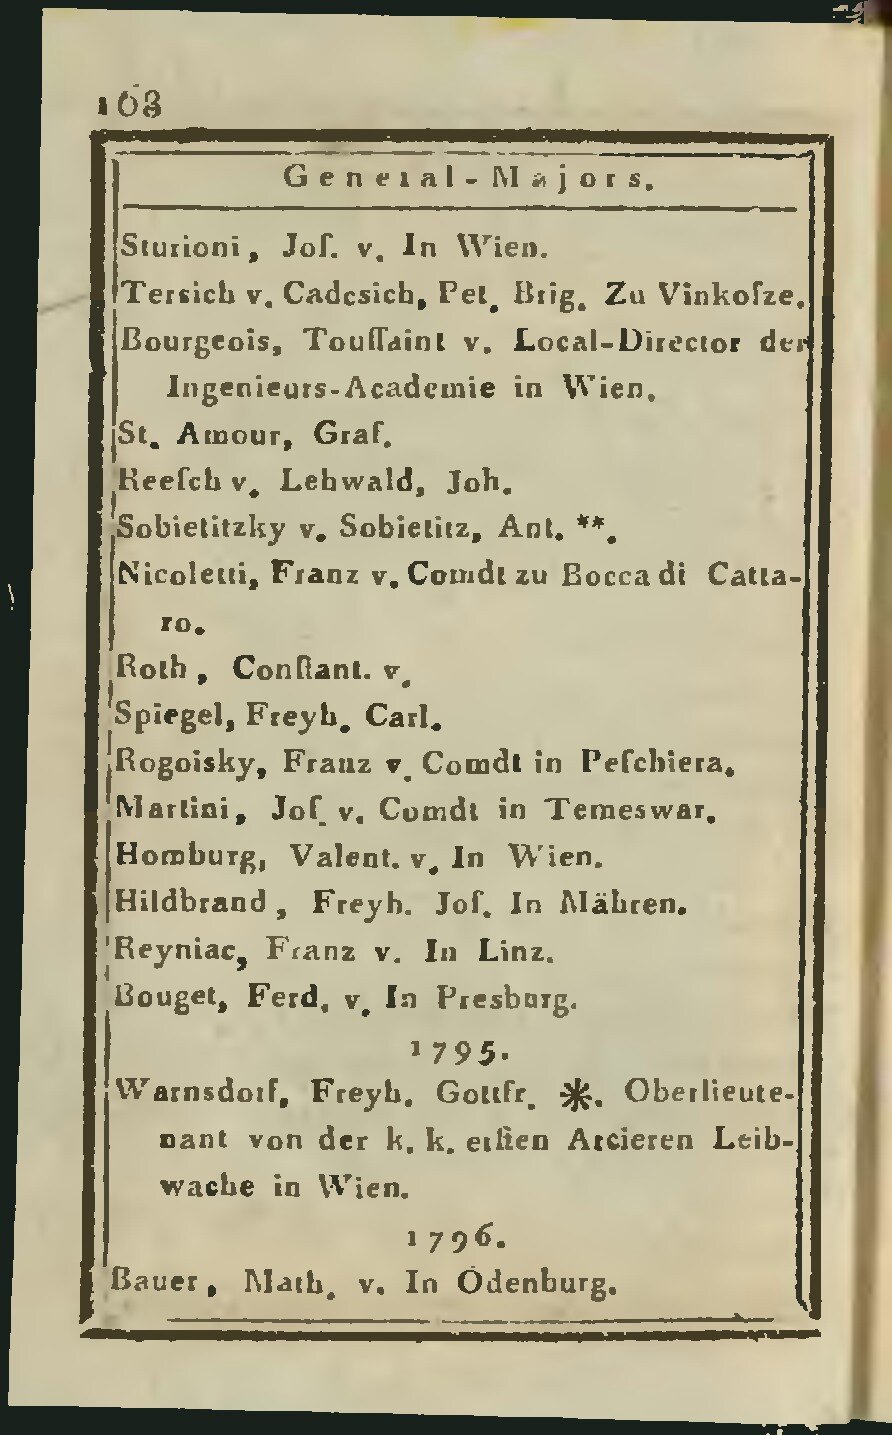 168
General-Majors.
Sturioni, Joſ. v. In Wien.
Tersich v. Cadesich, Pet. Brig. Zu Vinkoſze.
Bourgeois, Touſſaint v. Local-Director der
Ingenieurs-Academie in Wien.
St. Amour, Graf.
Reeſch v. Lehwald, Joh.
Sobietitzky v. Sobietitz, Ant. **.
Nicoletti, Franz v. Comdt zu Bocca di Catta-
ro.
Roth, Conſtant. v.
Spiegel, Freyh. Carl.
Rogoisky, Franz v. Comdt in Peſchiera.
Martini, Joſ. v. Comdt in Temeswar.
Homburg, Valent. v. In Wien.
Hildbrand, Freyh. Joſ. In Mähren.
Reyniac, Franz v. In Linz.
Bouget, Ferd. v. In Presburg.
1795.
Warnsdorf, Freyh. Gottfr. ✻. Oberlieute-
nant von der k. k. erſten Arcieren Leib-
wache in Wien.
1796.
Bauer, Math. v. In Ödenburg.